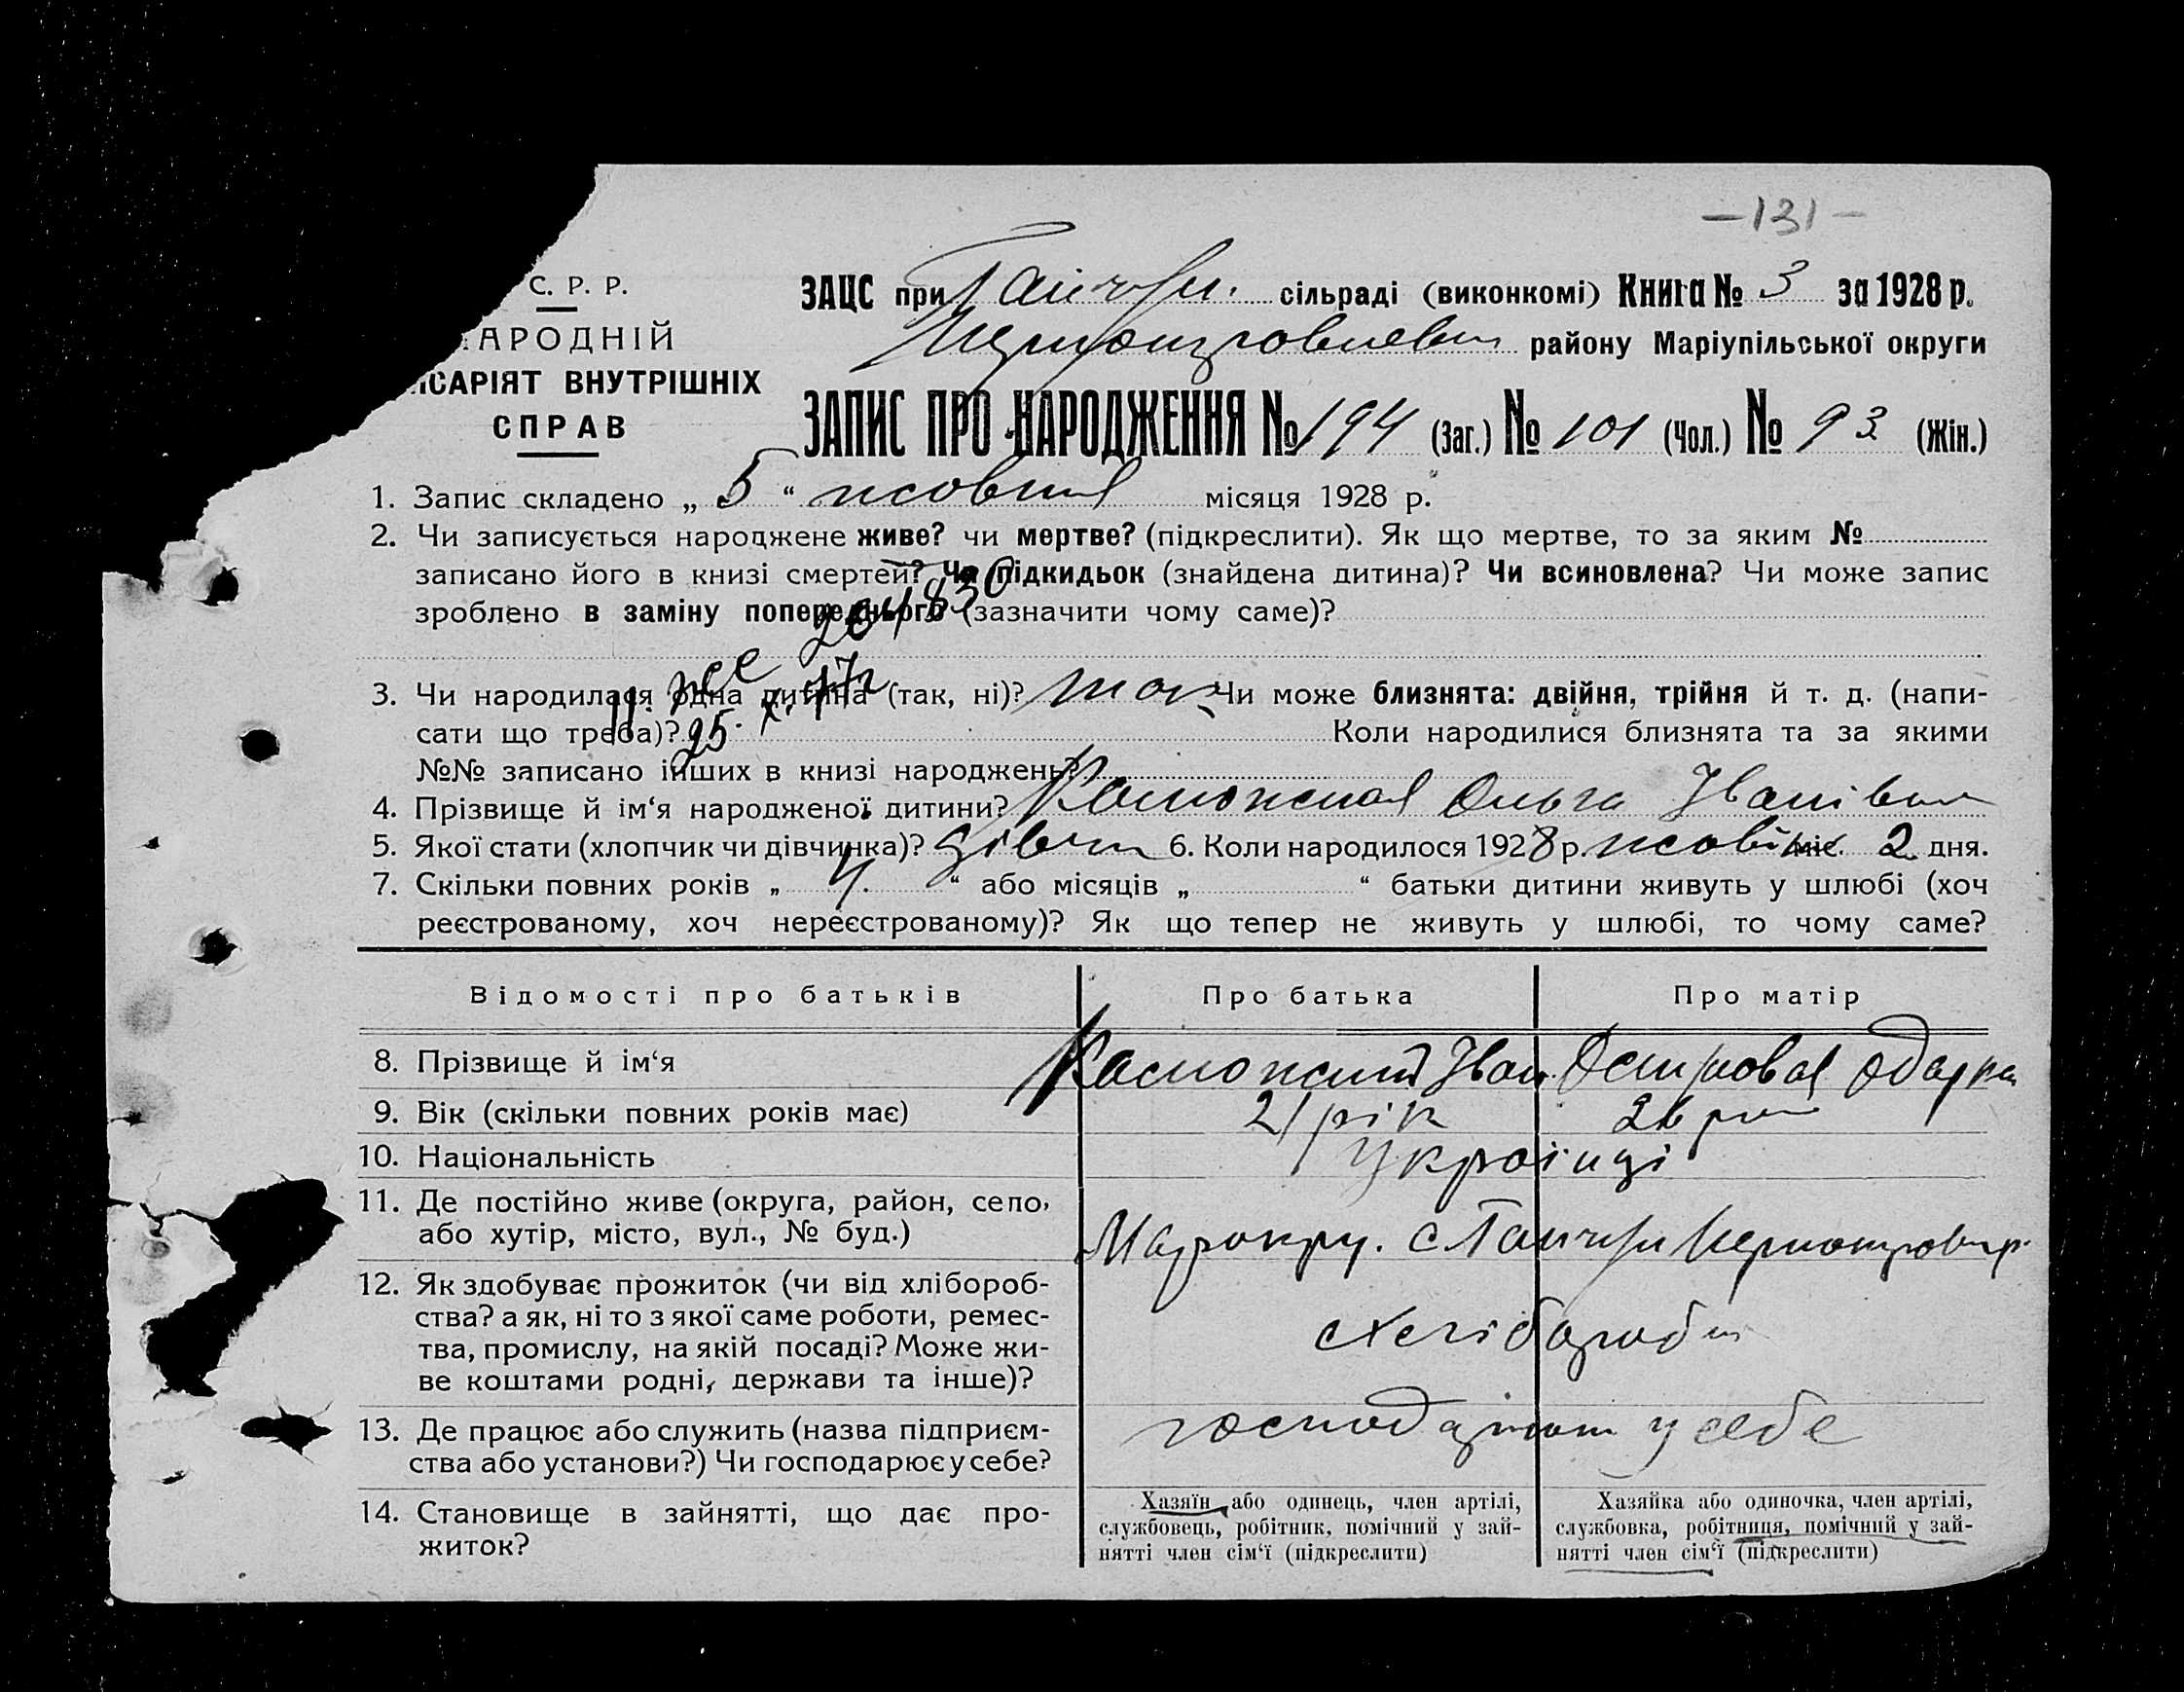 —131—
С. Р. Р.
АРОДНІЙ
ІСАРІЯТ ВНУТРІШНІХ
СПРАВ
ЗАЦС при Гайчур. сільраді (виконкомі) Книга № 3 за 1928 р.
району Маріупільської округи
ЗАПИС ПРО НАРОДЖЕННЯ № 194 (Заг.) № 101 (Чол.) № 93 (Жін.)
1. Запис складено „ 5 “ жовтня місяця 1928 р.
2. Чи записується народжене живе? чи мертве? (підкреслити). Як що мертве, то за яким №
записано його в книзі смертей? Чи підкидьок (знайдена дитина)? Чи всиновлена? Чи може запис
зроблено в заміну попереднього (зазначити чому саме)?
3. Чи народилася одна дитина (так, ні)? так Чи може близнята: двійня, трійня й т. д. (напи-
25. X.
сати що треба)? Коли народилися близнята та за якими
№№ записано інших в книзі народжень?
4. Прізвище й ім‘я народженої дитини? Ольга Іванівна
5. Якої стати (хлопчик чи дівчинка)? дівч 6. Коли народилося 1928 р. жовт міс. 2 дня.
7. Скільки повних років „ 4. “ або місяців „ “ батьки дитини живуть у шлюбі (хоч
реєстрованому, хоч нереєстрованому)? Як що тепер не живуть у шлюбі, то чому саме?
Відомості про батьків Про батька Про матір
8. Прізвище й ім‘я Іван Острова Одарка
9. Вік (скільки повних років має) 21 рік 26 рок
10. Національність Українці
11. Де постійно живе (округа, район, село,
або хутір, місто, вул., № буд.) Мар. окру. с Гайчур
12. Як здобуває прожиток (чи від хлібороб-
ства? а як, ні то з якої саме роботи, ремес-
тва, промислу, на якій посаді? Може жи-
ве коштами родні, держави та інше)?
хлібороб
13. Де працює або служить (назва підприєм-
ства або установи?) Чи господарює у себе?
у себе
14. Становище в зайнятті, що дає про-
житок?
Хазяїн або одинець, член артілі,
службовець, робітник, помічний у зай-
нятті член сім‘ї (підкреслити)
Хазяйка або одиночка, член артілі,
службовка, робітниця, помічний у зай-
нятті член сім‘ї (підкреслити)